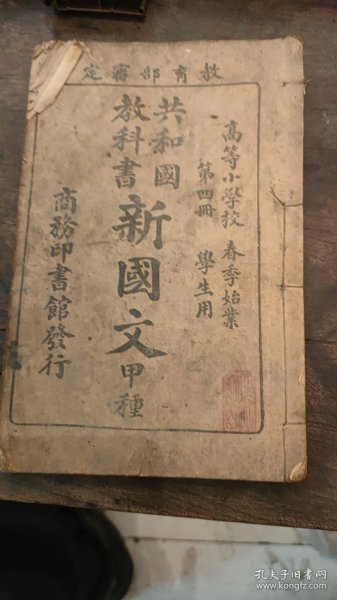 教育部審定
高等小學校 春季始業
第四冊 學生用
共和國
教科書
新國文甲種
商務印書館發行
孔夫子旧书网
www.kongfz.com